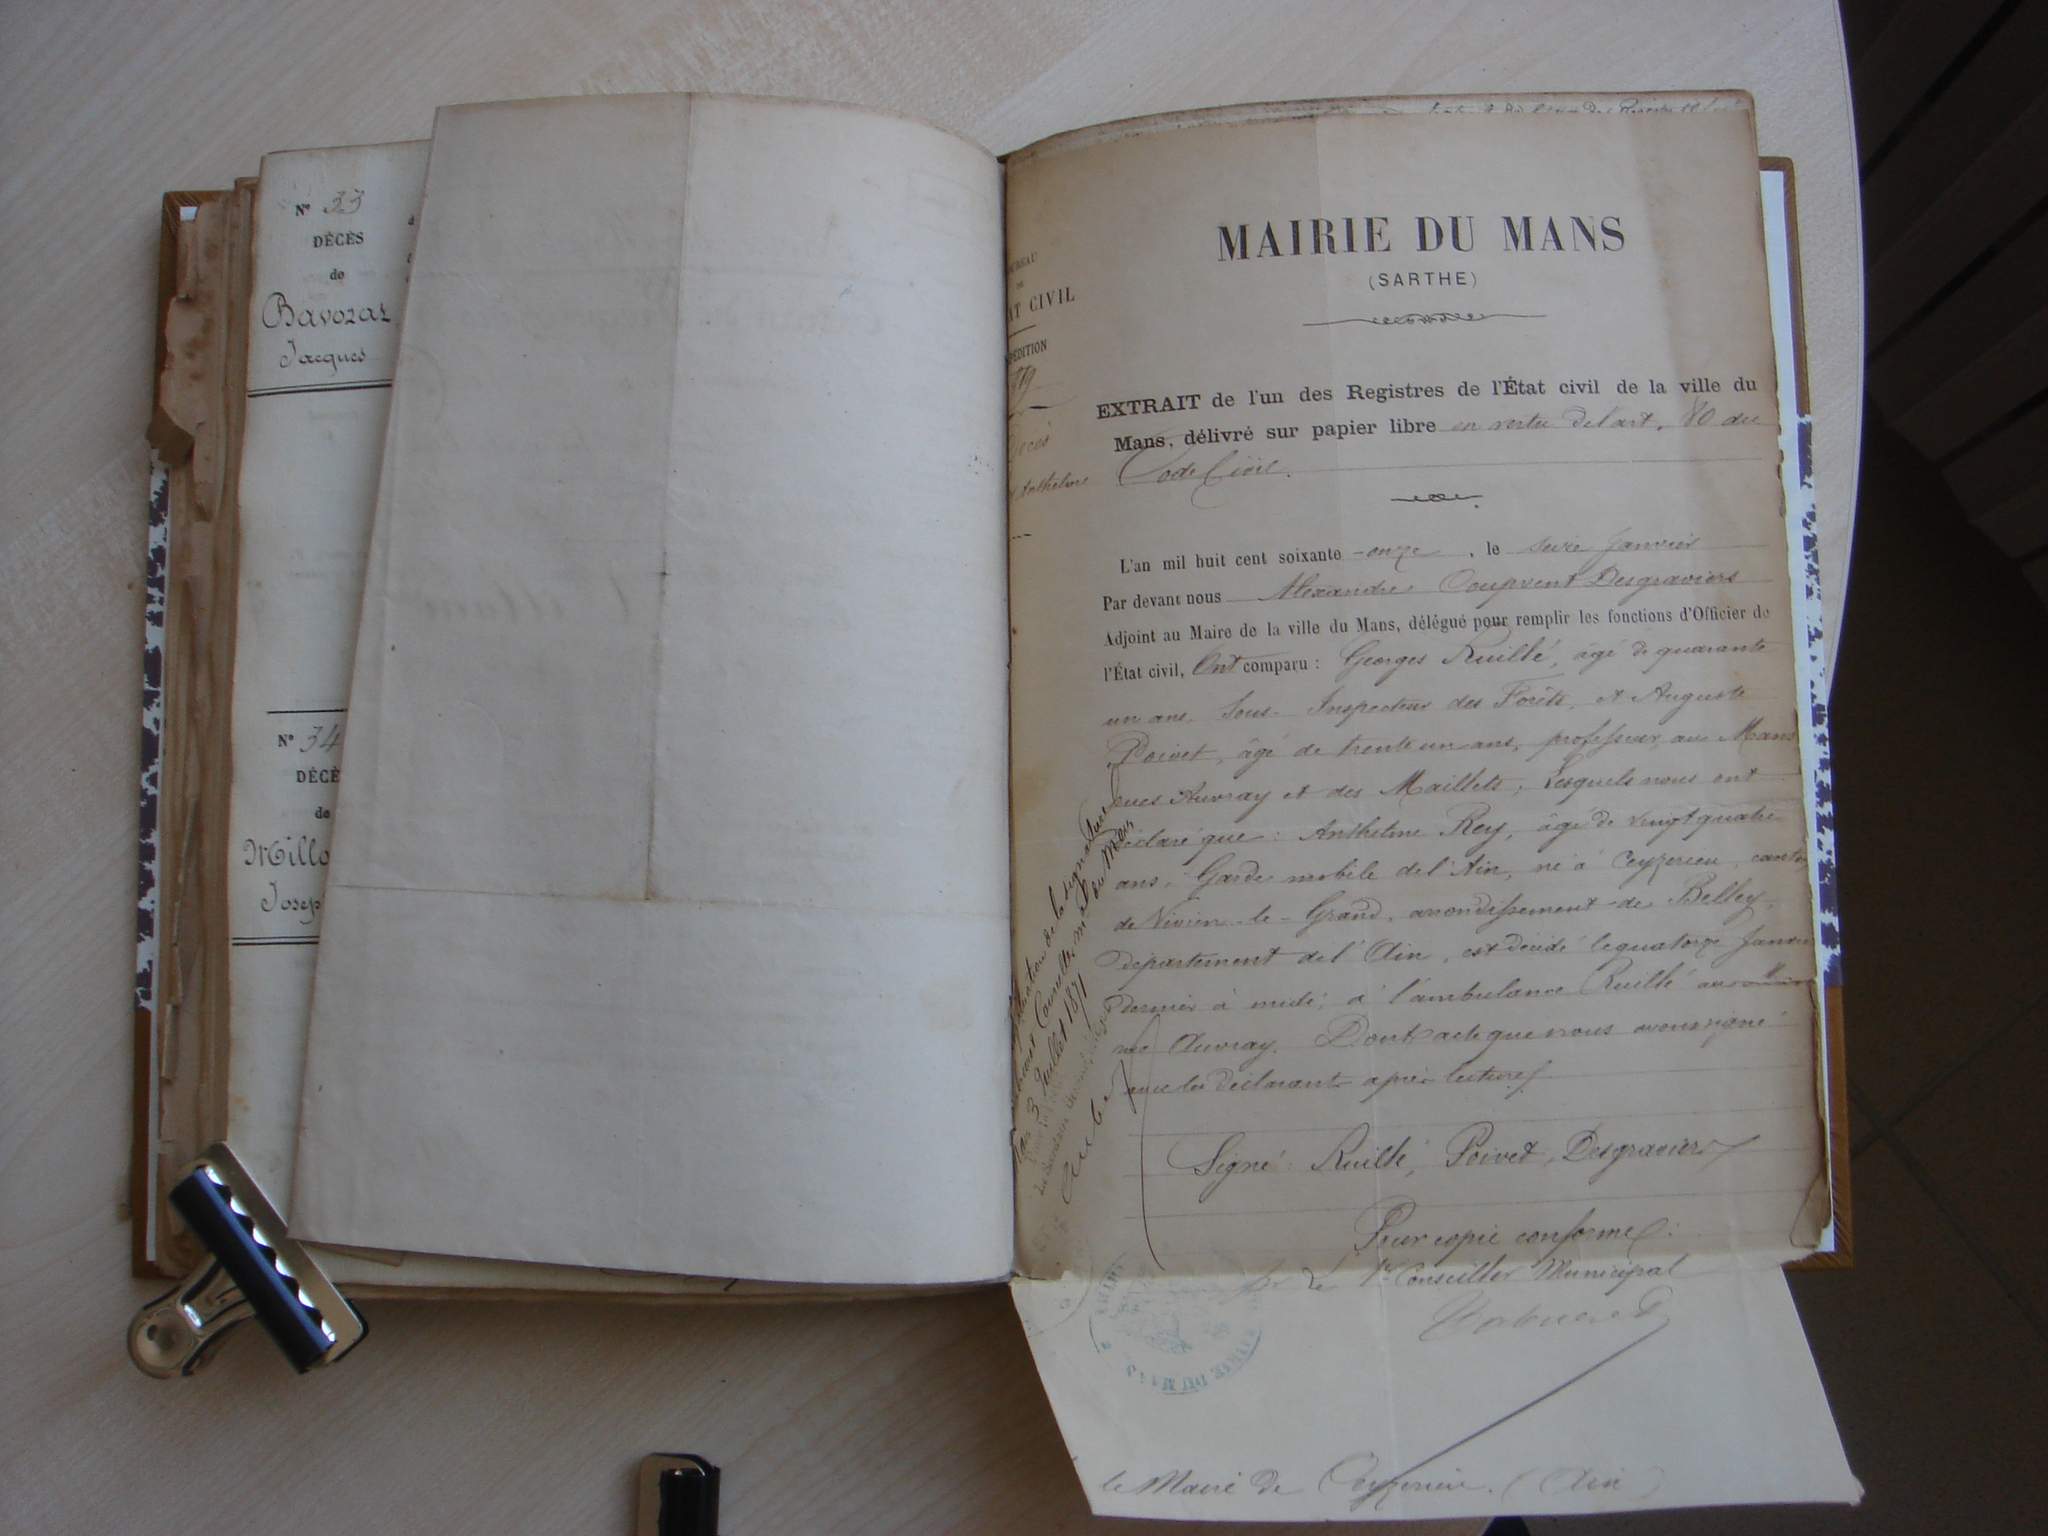 Nº 33
DÉCÈS
de
Bavozat
Jacques
Nº 34
DÉCÈ
de
Millo
Josep
MAIRIE DU MANS
(SARTHE)
AT CIVIL
PÉDITION
Décès
Anthelme
EXTRAIT de l'un des Registres de l'État civil de la ville du
Mans, délivré sur papier libre en vertu de l'art. 80 du
Code Civil.
L'an mil huit cent soixante-onze, le seize Janvier
Par devant nous Alexandre Coupvent Desgraviers
Adjoint au Maire de la ville du Mans, délégué pour remplir les fonctions d'Officier de
l'État civil, Ont comparu : Georges Ruillé, âgé de quarante
un ans, Sous-Inspecteur des Forêts, et Auguste
Poivet, âgé de trente un ans, professeur, au Mans
rues Auvray et des Maillets; Lesquels nous ont
déclaré que : Anthelme Rey, âgé de vingt quatre
ans, Garde mobile de l'Ain, né à Ceyzerieu, canton
de Virieu-le-Grand, arrondissement de Belley,
département de l'Ain, est décédé le quatorze Janvier
dernier à midi, à l'ambulance Ruillé
rue Auvray. Dont acte que nous avons signé
avec les déclarants après lecture.
Signé : Ruillé, Poivet, Desgraviers
Pour copie conforme :
pr Le 1er Conseiller Municipal
MAIRIE DU MANS
le Maire de Ceyzerieu. (Ain)
de la signature
3 Juillet 1871
du Mans